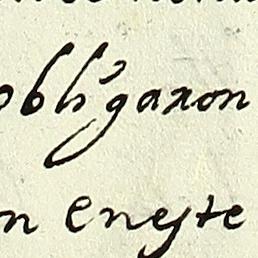 obligaxon
n eneste